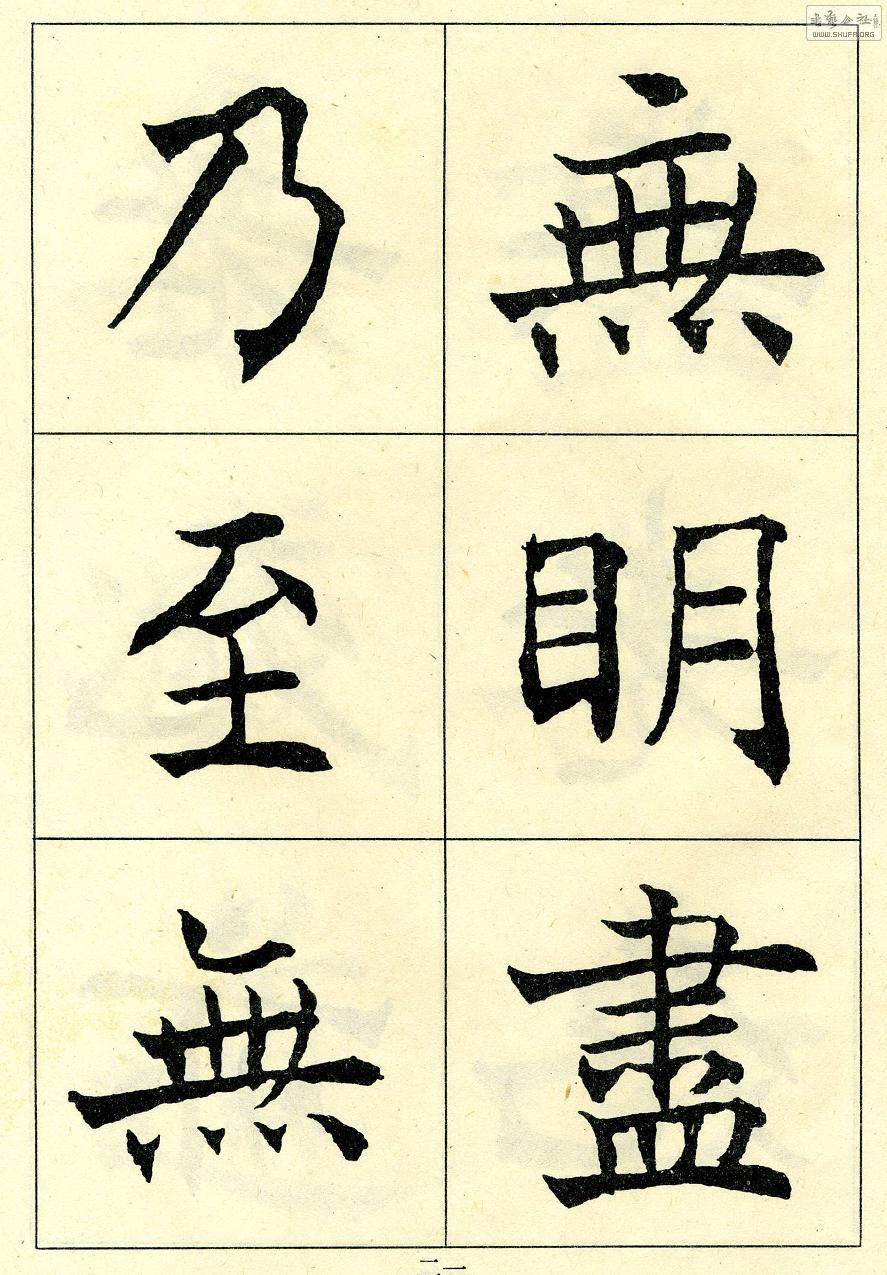 無明盡
乃至無
二一
WWW.SHUFA.ORG